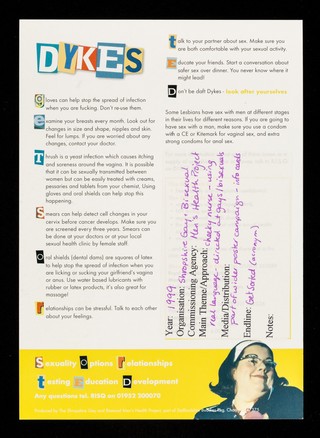 DYKES
gloves can help stop the spread of infection
when you are fucking. Don't re-use them.
examine your breasts every month. Look out for
changes in size and shape, nipples and skin.
Feel for lumps. If you are worried about any
changes, contact your doctor.
Thrush is a yeast infection which causes itching
and soreness around the vagina. It is possible
that it can be sexually transmitted between
women but can be easily treated with creams,
pessaries and tablets from your chemist. Using
gloves and oral shields can help stop this
happening.
Smears can help detect cell changes in your
cervix before cancer develops. Make sure you
are screened every three years. Smears can
be done at your doctors or at your local
sexual health clinic by female staff
oral shields (dental dams) are squares of latex
to help stop the spread of infection when you
are licking or sucking your girlfriend's vagina
or anus. Use water based lubricants with
rubber or latex products. It's also great for
massage!
relationships can be stressful. Talk to each other
about your feelings.
talk to your partner about sex. Make sure you
are both comfortable with your sexual activity.
Educate your friends. Start a conversation about
safer sex over dinner. You never know where it
might lead!
Don't be daft Dykes - look after yourselves
Some Lesbians have sex with men at different stages
in their lives for different reasons. If you are going to
have sex with a man, make sure you use a condom
with a CE or Kitemark for vaginal sex, and extra
strong condoms for anal sex.
Year: 1999
Organisation: Shropshire Gay & Bisexual
Commissioning Agency: Men's Health Project
Main Theme/Approach: cheeky nurse - using
real language - directed at gays/bisexuals
Media/Distribution:
part of wider poster campaign - info cards
Endline: Get Sorted (acronym)
Notes:
Sexuality Options Relationships
testing Education Development
Any questions tel. RISQ on 01952 200070